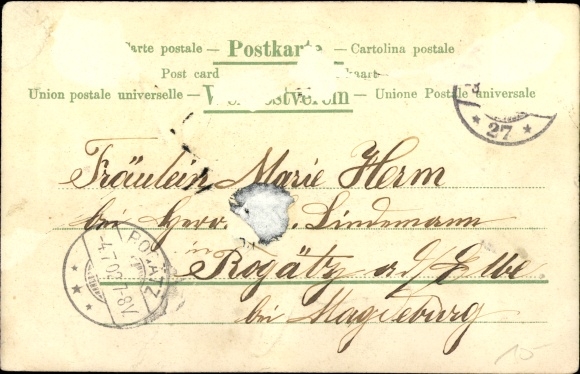 Carte postale — Postkarte — Cartolina postale
Post card
Union postale universelle — Weltpostverein — Unione Postale universale
27
Fräulein Marie Herm
bei Herrn Lindemann
in
Rogätz a. d/ Elbe
bei Magdeburg
ROGÄTZ
-4.7.03.7-8V.
15